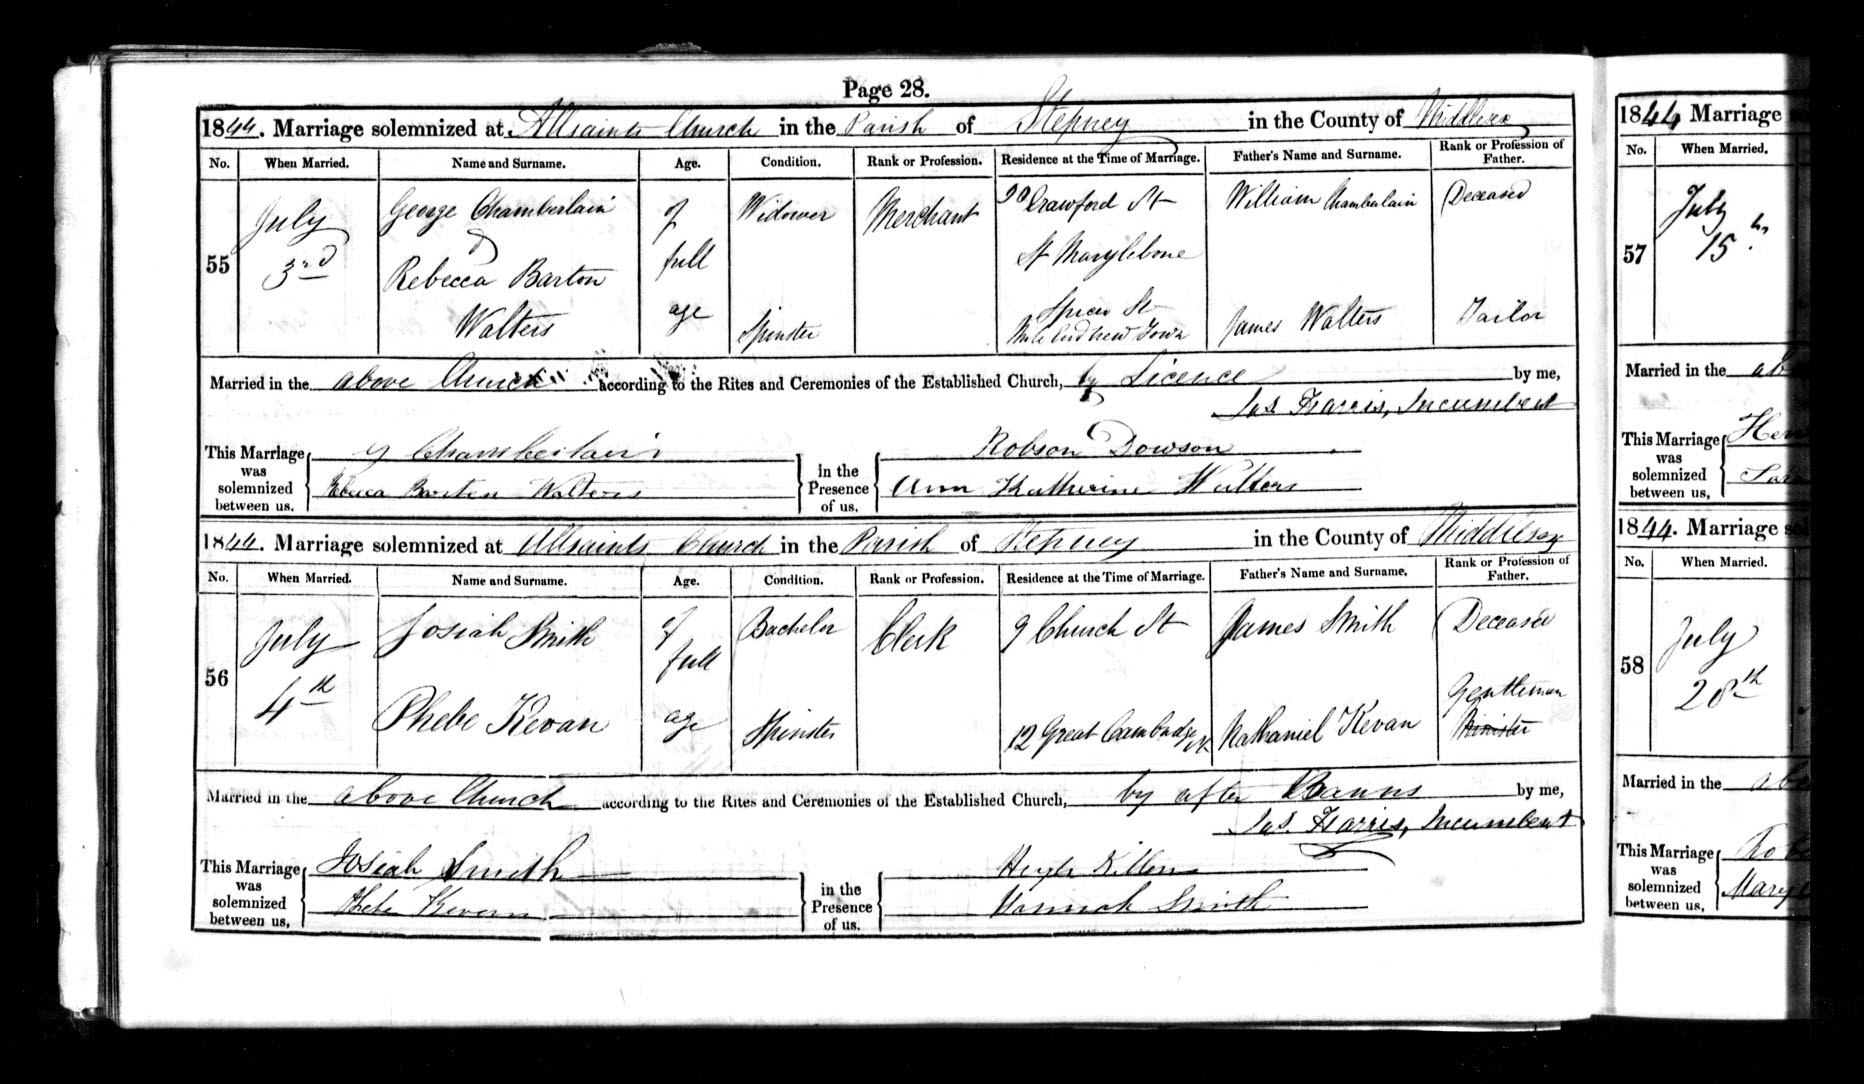 Page 28.
1844. Marriage solemnized at Allsaints Church in the Parish of Stepney in the County of Middlesex
No. When Married. Name and Surname. Age. Condition. Rank or Profession. Residence at the Time of Marriage. Father's Name and Surname. Rank or Profession of Father.
55 July 3rd George Chamberlain of Widower Merchant Crawford St William Chamberlain Deceased
St Marylebone
Rebecca Barton full
Walters age Spinster Spicer St James Walters Tailor
Mile End New Town
Married in the above Church according to the Rites and Ceremonies of the Established Church, by Licence by me,
Jas. Harris, Incumbent
This Marriage was solemnized between us, G Chamberlain in the Presence of us. Robson Dowson
Rebecca Barton Walters Ann Katherine Walters
1844. Marriage solemnized at Allsaints Church in the Parish of Stepney in the County of Middlesex
No. When Married. Name and Surname. Age. Condition. Rank or Profession. Residence at the Time of Marriage. Father's Name and Surname. Rank or Profession of Father.
56 July 4th Josiah Smith of Bachelor Clerk 9 Church St James Smith Deceased
full
Gentleman
Phebe Kevan age Spinster 12 Great Cambridge St Nathaniel Kevan Minister
Married in the above Church according to the Rites and Ceremonies of the Established Church, by after Banns by me,
Jas. Harris, Incumbent
This Marriage was solemnized between us, Josiah Smith in the Presence of us. Hugh Killen
Phebe Kevan Hannah Smith
1844 Marriage
No. When Married.
57 July 15th
Married in the
This Marriage was solemnized between us,
1844. Marriage
No. When Married.
58 July 28th
Married in the
This Marriage was solemnized between us,